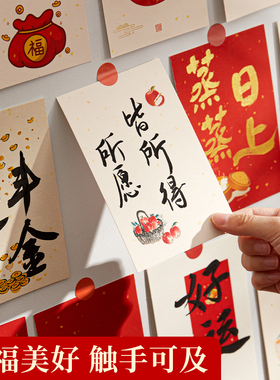 福
所愿
皆所得
日上
蒸蒸
斗金
好运
福美好 触手可及